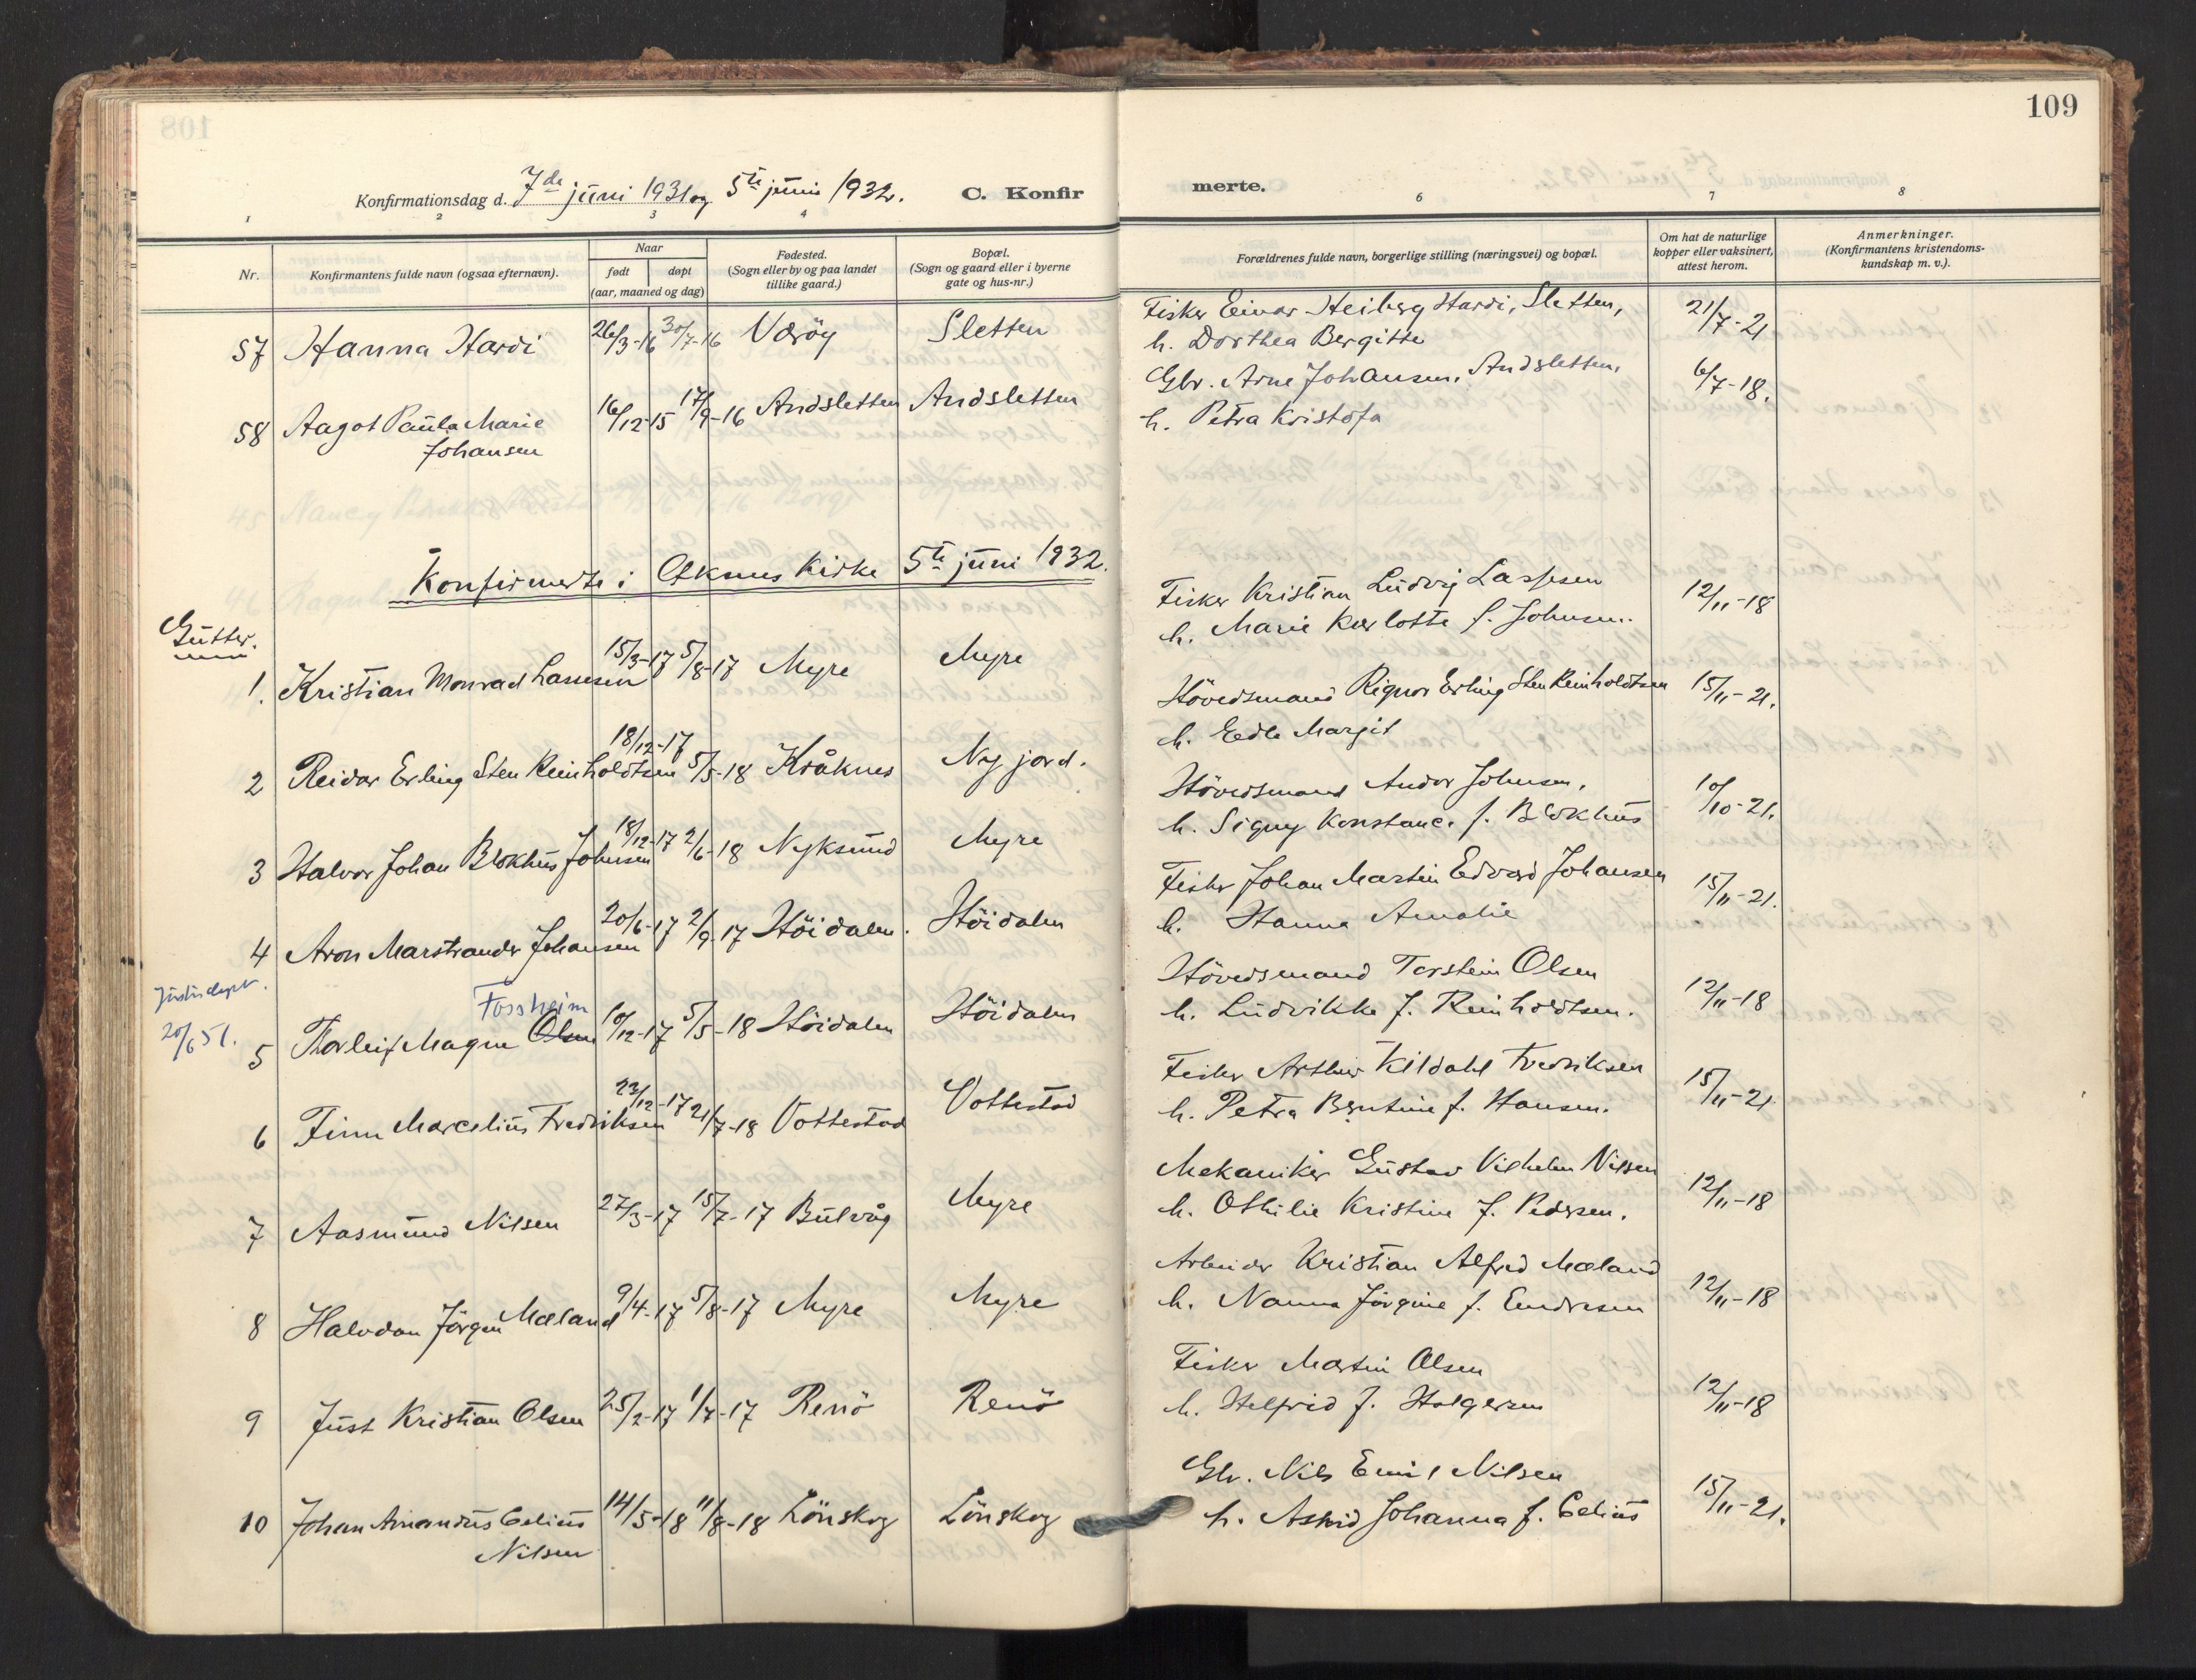 109
Konfirmationsdag d. 7de juni 1931 og 5te juni 1932.
C. Konfirmerte.
1 2 3 4 6 7 8
Nr.
Konfirmantens fulde navn (ogsaa efternavn).
Naar
født
døpt
(aar, maaned og dag)
Fødested.
(Sogn eller by og paa landet
tillike gaard.)
Bopæl.
(Sogn og gaard eller i byerne
gate og hus-nr.)
Forældrenes fulde navn, borgerlige stilling (næringsvei) og bopæl.
Om hat de naturlige
kopper eller vaksinert,
attest herom.
Anmerkninger.
(Konfirmantens kristendoms-
kundskap m. v.).
57 Hanna Hardi 26/3-16 30/7-16 Væröy Sletten
Fisker Einar Heiberg Hardi, Sletten, 21/7-21
h. Dorthea Bergitte
58 Aagot Paula Marie 16/12-15 17/9-16 Andsletten Andsletten
Johansen
Gbr. Arne Johansen, Andsletten, 6/7-18.
h. Petra Kristofa
Konfirmerte i Öksnes Kirke 5te juni 1932.
Gutter.
1. Kristian Monrad Larsesen 15/3-17 5/8-17 Myre Myre
Fisker Kristian Ludvig Lassesen 12/11-18
h. Marie Karlotte f. Johnsen.
2 Reidar Erling Sten Reinholdtsen 18/12-17 5/5-18 Kråknes Ny jord.
Hövedsmand Rignor Erling Sten Reinholdtsen 15/11-21.
h. Edle Margit
3 Halvor Johan Blokhus Johnsen 18/12-17 2/6-18 Nyksund Myre
Hövedsmand Andor Johnsen, 10/10-21.
h. Signy Konstance f. Blokhus
4 Aron Marstrander Johansen 20/6-17 2/9-17 Höidalen. Höidalen
Fisker Johan Martin Edvard Johansen 15/11-21.
h. Hanna Amalie
20/6 51.
Fossheim
5 Thorleif Magne Olsen 10/12-17 5/5-18 Höidalen Höidalen
Hövedsmand Torstein Olsen 12/11-18
h. Ludvikke f. Reinholdtsen.
6 Finn Marcelius Fredriksen 23/12-17 21/7-18 Vottestad Vottestad
Fisker Arthur Kildahl Fredriksen 15/11-21
h. Petra Berntine f. Hansen.
7 Aasmund Nilsen 27/3-17 15/7-17 Bulvåg Myre
Mekaniker Gustav Vilhelm Nilsen 12/11-18
h. Othilie Kristine f. Pedersen.
8 Halvdan Jörgen Mæland 9/4-17 5/8-17 Myre Myre
Arbeider Kristian Alfred Mæland 12/11-18
h. Nanna Jörgine f. Endresen
9 Just Kristian Olsen 25/2-17 1/7-17 Renö Renö
Fisker Martin Olsen 12/11-18
h. Helfrid f. Holgersen
10 Johan Amandus Celius 14/5-18 11/8-18 Lönskog Lönskog
Nilsen
Gbr. Nils Emil Nilsen 15/11-21.
h. Astrid Johanna f. Celius